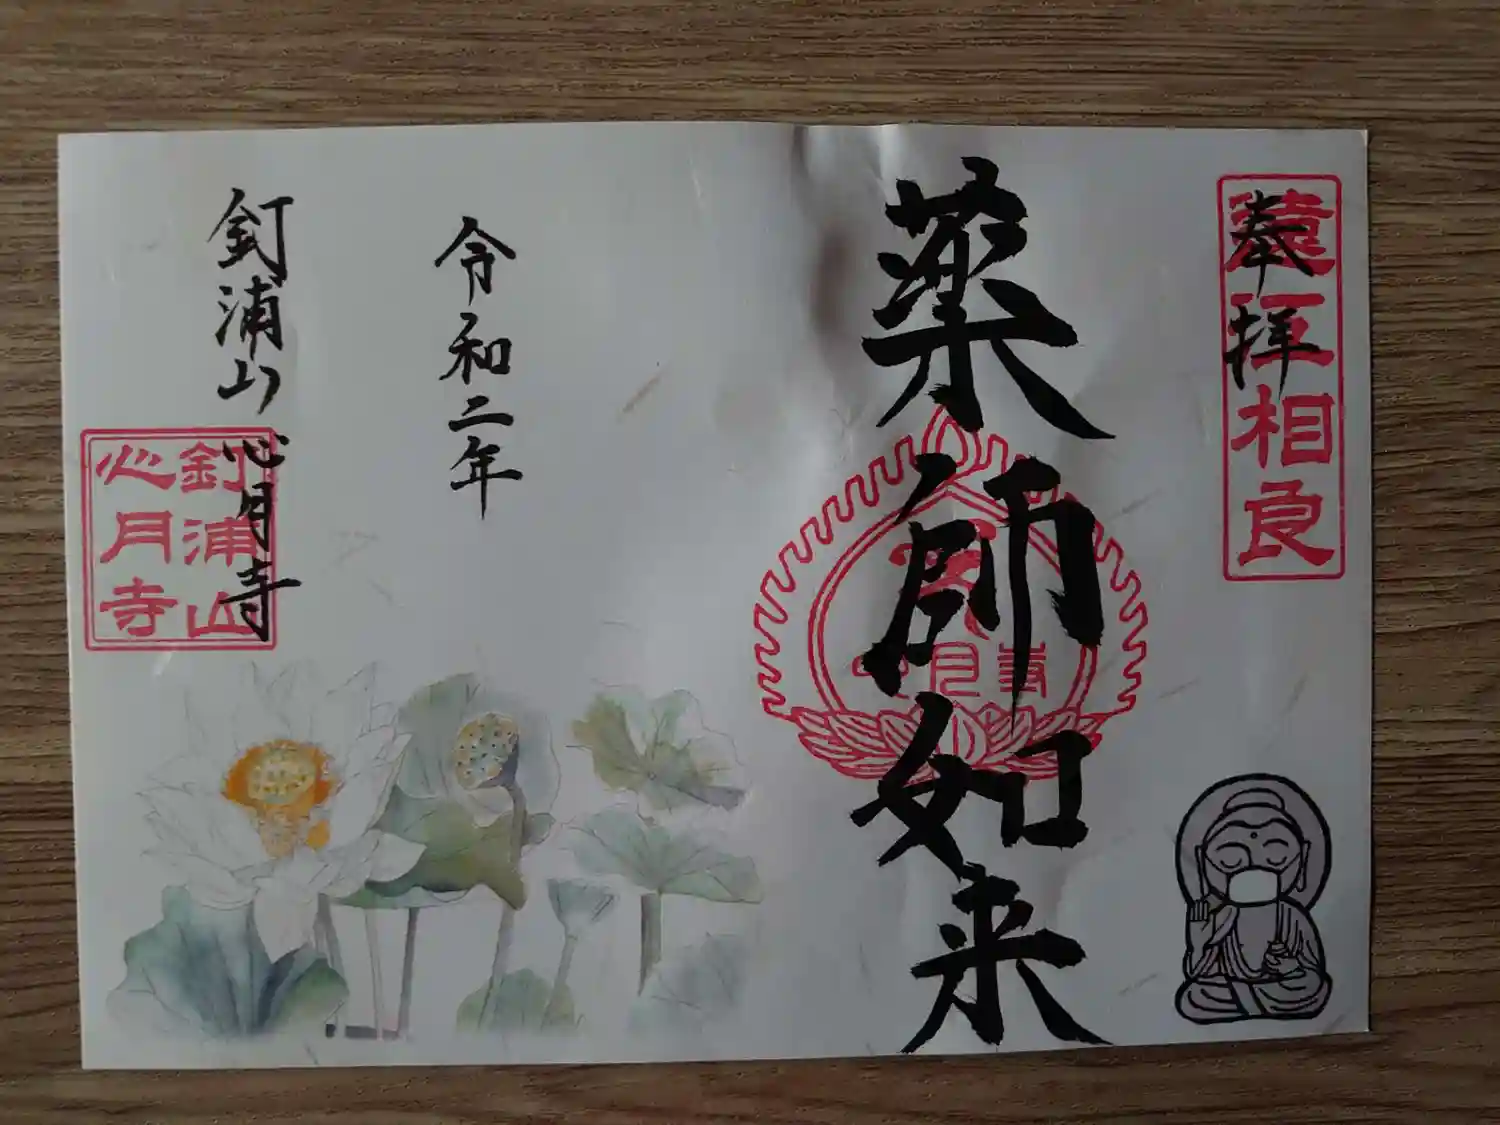 奉拝
遠江相良
薬師如来
令和二年
釘浦山 心月寺
釘浦山
心月寺